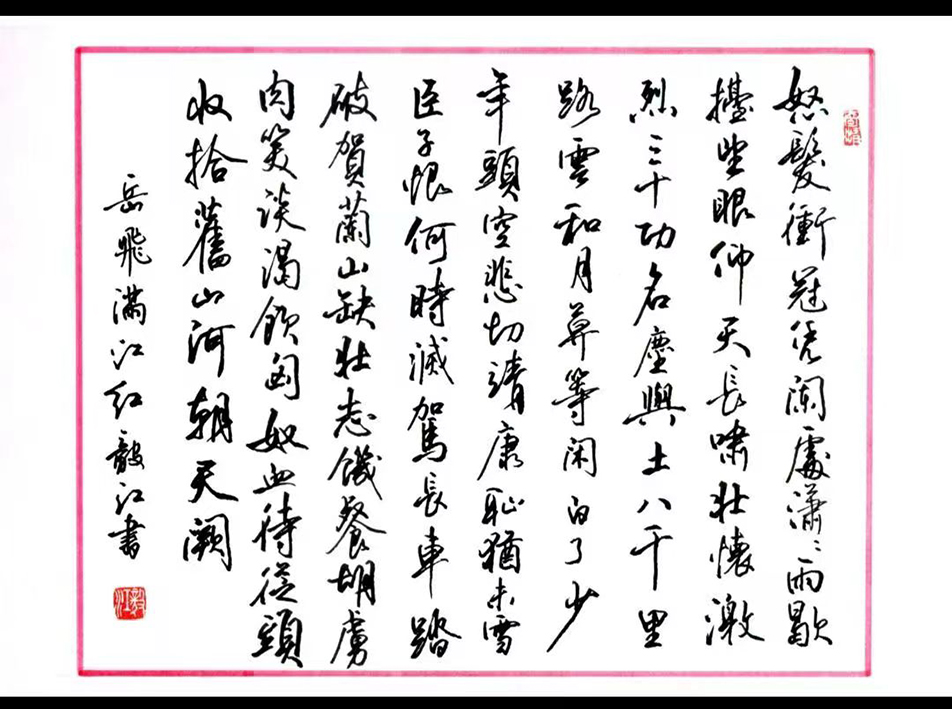 怒髮衝冠凭闌處瀟〻雨歇
擡望眼仰天長嘯壯懷激
烈三十功名塵與土八千里
路雲和月莫等閑白了少
年頭空悲切靖康恥猶未雪
臣子恨何時滅駕長車踏
破賀蘭山缺壯志饑餐胡虜
肉笑談渴飲匈奴血待從頭
收拾舊山河朝天闕
岳飛满江红毅江書
毅江